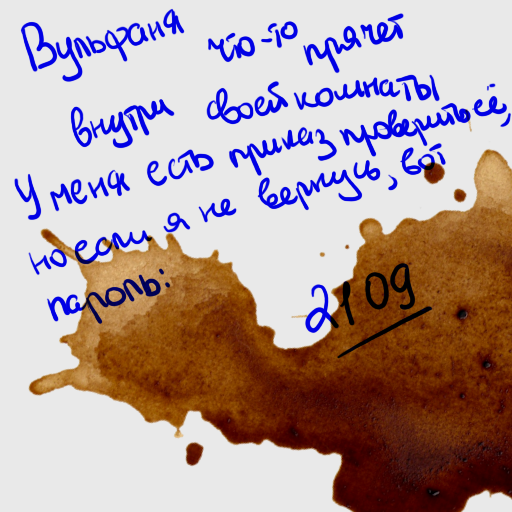 Вульфаня что-то прячет
внутри своей комнаты
У меня есть приказ проверить её,
но если я не вернусь, вот
пароль:
2109